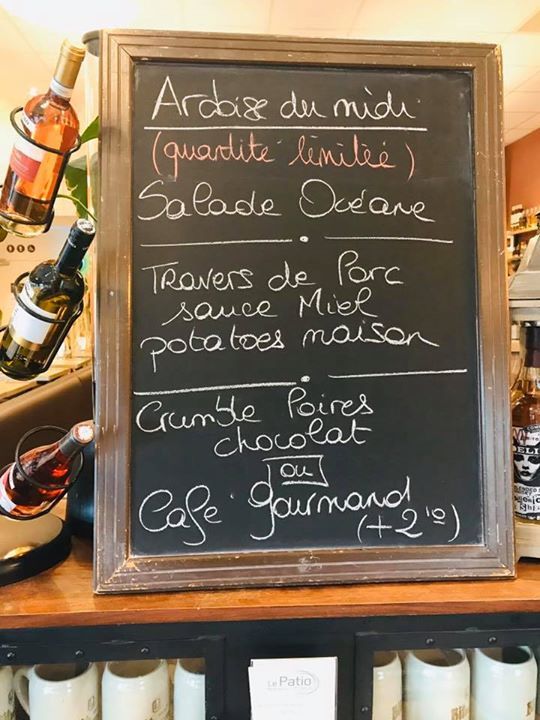 Ardoise du midi
(quantité limitée)
Salade Océane
Travers de Porc
sauce Miel
potatoes maison
Crumble Poires
chocolat
ou
Café gourmand
(+2,10)
Le Patio